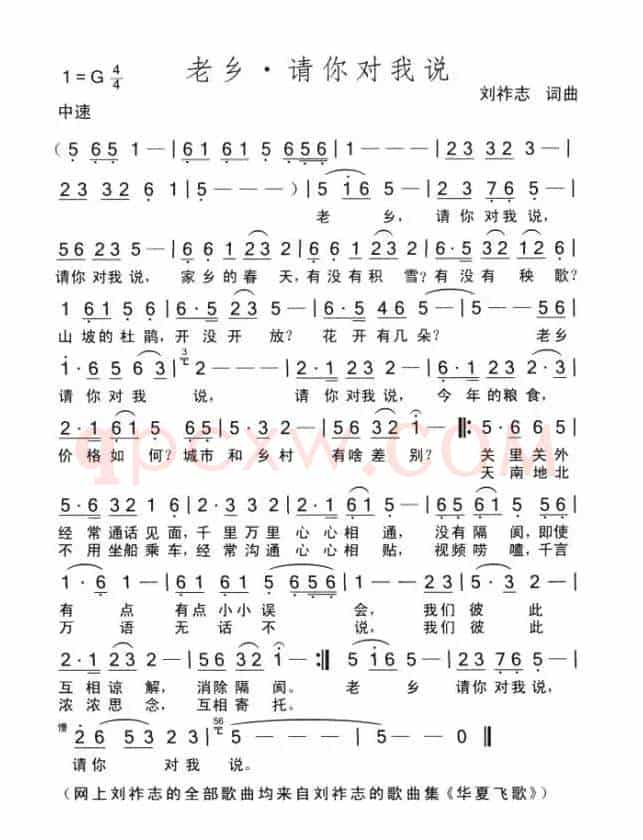 老乡·请你对我说
1=G 4/4
刘祚志 词曲
中速
(5 65 1—|61 61 5656|1———|23 32 3—|
23 32 6 1|5———)|5 16 5|23 76 5|
老 乡, 请你对我说,
56 23 5|66 1 23 2|66 1 23 5|6·5 32 12 6|
请你对我说, 家乡的春天,有没有积雪?有没有秧歌?
1 61 5 6|6·5 23 5|6·5 46 5|5— 56|
山坡的杜鹃,开没开放? 花开有几朵? 老乡
1·6 56 63|2———|2·1 23 5|2·1 23 2|
请你对我说, 请你对我说,今年的粮食,
2·1 61 5|56 5 32|56 32 1—|:5·6 65|
价格如何?城市和乡村 有啥差别? 关里关外
天南地北
5·6 32 6 1|2·3 21 6 5|5 65 61 5|
经常通话见面,千里万里心心相通,没有隔阂,即使
不用坐船乘车,经常沟通心心相贴,视频唠嗑,千言
1·6 1|21 61 5 656|1———|2·1 23 5|
有点有点小小误会,我们彼此
万语无话不说,我们彼此
2·1 23 2|56 32 1—:|5 16 5|23 76 5|
互相谅解,消除隔阂。 老乡 请你对我说,
浓浓思念,互相寄托。
慢
26 53 23|5———|5—0|
请你 对我说。
(网上刘祚志的全部歌曲均来自刘祚志的歌曲集《华夏飞歌》)
qpcxw.COM